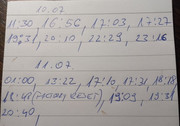 10.07.
11:30 16:56, 17:03, 17:27
19:31, 20:10, 22:29, 23:16
11.07.
01:00, 13:22, 17:10, 17:31, 18:18
18:48 19:09, 19:31
20:40,